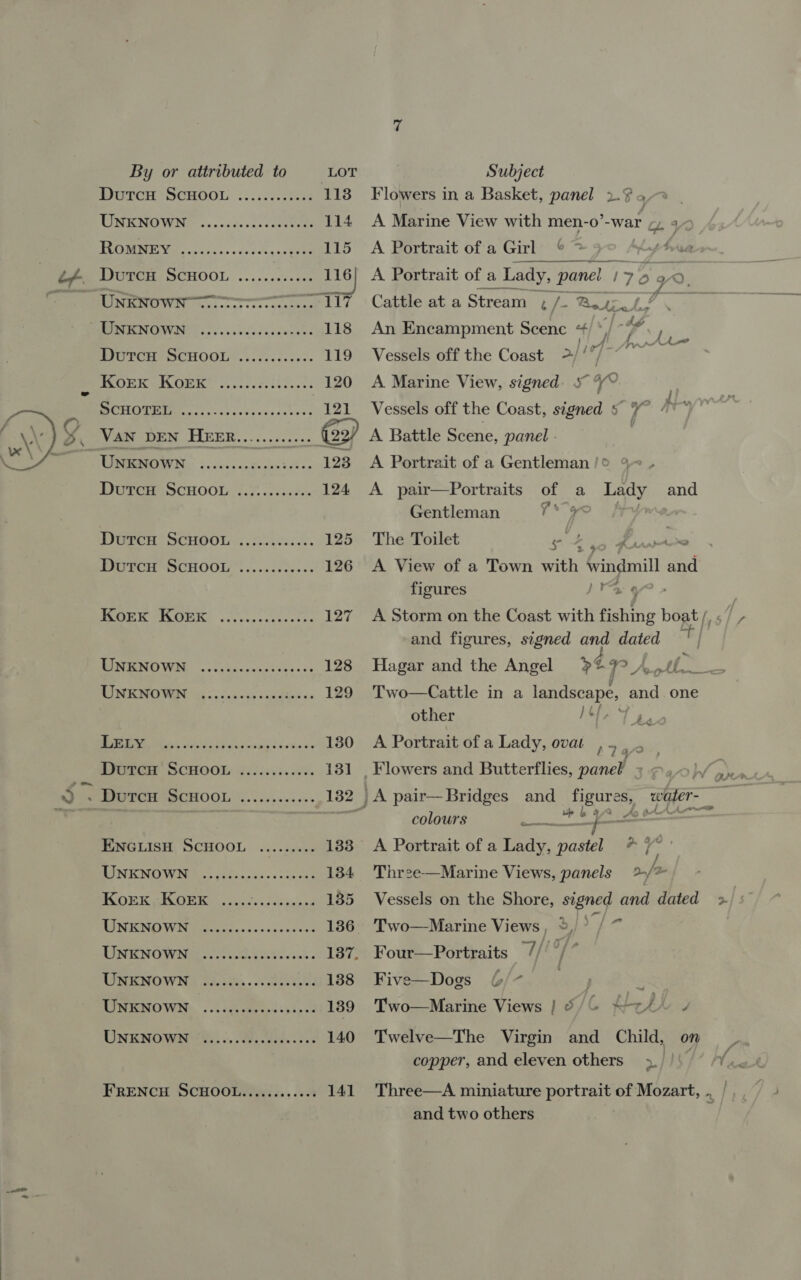 7
By or attributed to LOT Subject
DUTCH SCHOOL ............ 113 Flowers in a Basket, panel
UNKNOWN .................. 114 A Marine View with men-o’-war
ROMNEY .................. 115 A Portrait of a Girl
DUTCH SCHOOL ............ 116 A Portrait of a Lady, panel
UNKNOWN .................. 117 Cattle at a Stream
UNKNOWN .................. 118 An Encampment Scene
DUTCH SCHOOL ............ 119 Vessels off the Coast
KOEK KOEK ............... 120 A Marine View, signed
SCHOTEL .................. 121 Vessels off the Coast, signed
VAN DEN HEER............ 122 A Battle Scene, panel
UNKNOWN .................. 123 A Portrait of a Gentleman
DUTCH SCHOOL ............ 124 A pair—Portraits of a Lady and
Gentleman
DUTCH SCHOOL ............ 125 The Toilet
DUTCH SCHOOL ............ 126 A View of a Town with windmill and
figures
KOEK KOEK ............... 127 A Storm on the Coast with fishing boat
and figures, signed and dated
UNKNOWN .................. 128 Hagar and the Angel
UNKNOWN .................. 129 Two—Cattle in a landscape, and one
other
LELY ..................... 130 A Portrait of a Lady, oval
DUTCH SCHOOL ............ 131 Flowers and Butterflies, panel
DUTCH SCHOOL ............ 132 A pair—Bridges and figures, water-
colours
ENGLISH SCHOOL ......... 133 A Portrait of a Lady, pastel
UNKNOWN .................. 134 Three—Marine Views, panels
KOEK KOEK ............... 135 Vessels on the Shore, signed and dated
UNKNOWN .................. 136 Two—Marine Views
UNKNOWN .................. 137 Four—Portraits
UNKNOWN .................. 138 Five—Dogs
UNKNOWN .................. 139 Two—Marine Views
UNKNOWN .................. 140 Twelve—The Virgin and Child, on
copper, and eleven others
FRENCH SCHOOL............ 141 Three—A miniature portrait of Mozart,
and two others